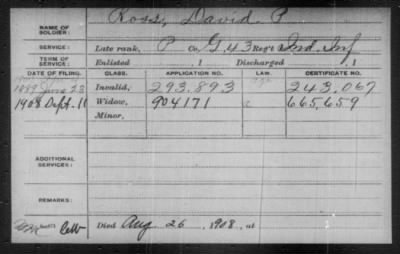 NAME OF SOLDIER: Ross, David P
SERVICE: Late rank, P Co. G, 43 Reg't Ind. Inf
TERM OF SERVICE: Enlisted , 1 Discharged , 1
DATE OF FILING. CLASS. APPLICATION NO. LAW. CERTIFICATE NO.
June 28 Invalid, 293.893 243.067
1908 Sept. 11 Widow, 904171 665.659
Minor,
ADDITIONAL SERVICES:
REMARKS:
Died Aug 26, 1908, at